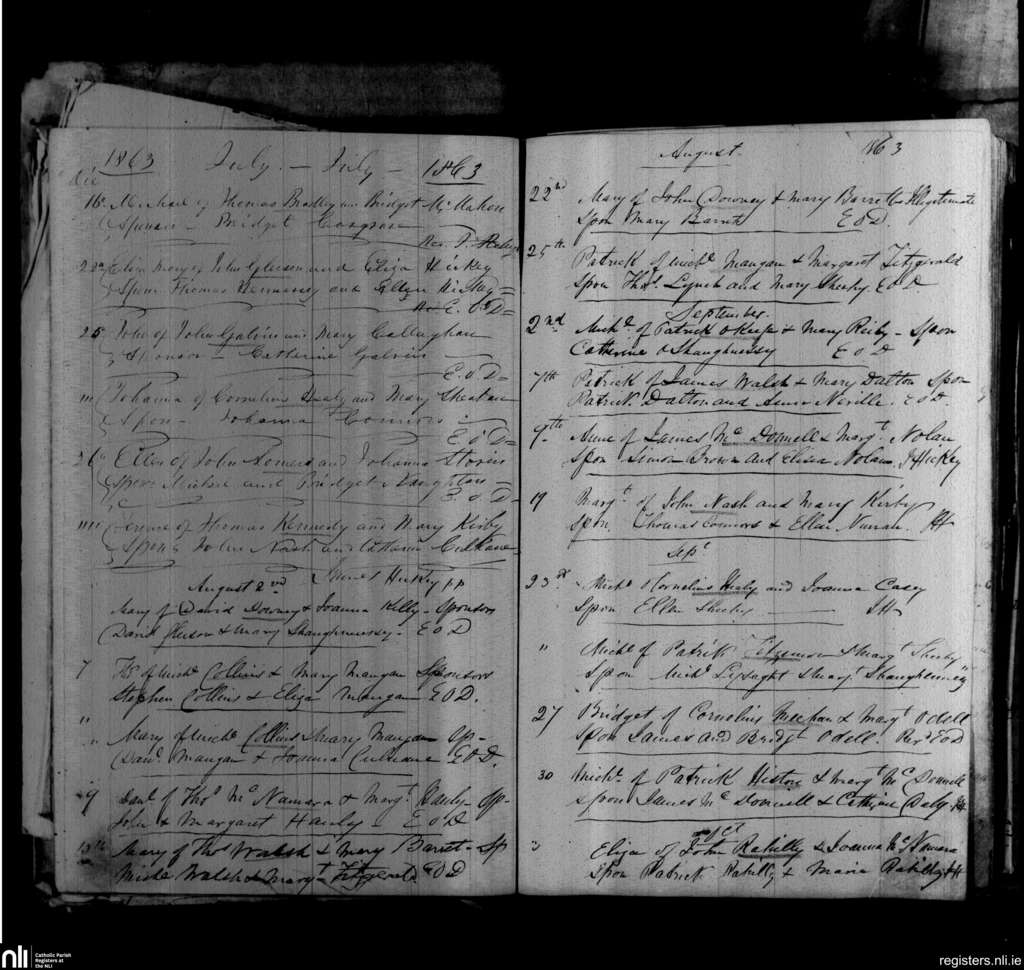 1863 July. — July — 1863
Die
16 Michael of Thomas Bradley and Bridget McMahon
Sponsor — Bridget Cosgrove
Rev. T.
22 Eliza Mary of John Gleeson and Eliza Hickey
Spons Thomas Hennessy and Ellen Hickey =
E. O'D =
25 John of John Galvin and Mary Callaghan
Sponsor — Catherine Galvin —
E. O'D =
"" Johanna of Cornelius Healy and Mary Sheahan
Spon — Johanna Connors —
E O'D =
26 Ellen of John Somers and Johanna
Spons Michael and Bridget Naughton —
E. O'D —
"" of Thomas Kennedy and Mary Kirby
Spons John Nash and Catherine Culhane
James Hickey pp
August 2nd
Mary of David Downey & Joanna Kelly — Sponsors
David Gleeson & Mary Shaughnessy — E O D
7 Ths of Michl Collins & Mary Mangan Sponsors
Stephen Collins & Eliza Mangan — E O D.
" Mary of Michl Collins & Mary Mangan Sp —
" Danl Mangan & Joanna Culhane E O D.
9 Danl of Thos McNamara & Margt Hanly — Sp —
John & Margaret Hanley — E O D
13th Mary of Thos Walsh & Mary Barret — Sp
Michl Walsh & Margt Fitzgerald E O D
August. 1863
22nd Mary of John Downey & Mary Barrett Illegitimate
Spon Mary Barrett E O D.
25th Patrick of Michl Mangan & Margaret Fitzgerald
Spon Thos Lynch and Mary Sheehy E O D.
September.
2nd Michl of Patrick O Keefe & Mary Kirby — Spon
Catherine O Shaughnessy E O D
7th Patrick of James Walsh & Mary Dalton Spon
Patrick Dalton and Anne Neville. E O D.
9th Anne of James McDonnell & Margt Nolan
Spon Simon Brown and Eliza Nolan. J Hickey
19 Margt of John Nash and Mary Kirby
Spon. Thomas Connors & Ellen JH
Sept
23rd Michl of Cornelius Healy and Joanna Casey
Spon Ellen Sheehy — JH
" Michl of Patrick & Margt Sheehy
Spon Michl Lysaght & Margt Shaughnessy "
27 Bridget of Cornelius Meehan & Margt Odell
Spon James and Bridgt Odell. Revd E O D
30 Michl of Patrick & Margt McDonnell
Spon James McDonnell & Cathrine Daly. JH
Oct
3 Eliza of John Rahilly & Joanna McNamara
Spon Patrick Rahilly & Maria Rahilly JH
nli
Catholic Parish
Registers at
the NLI
registers.nli.ie